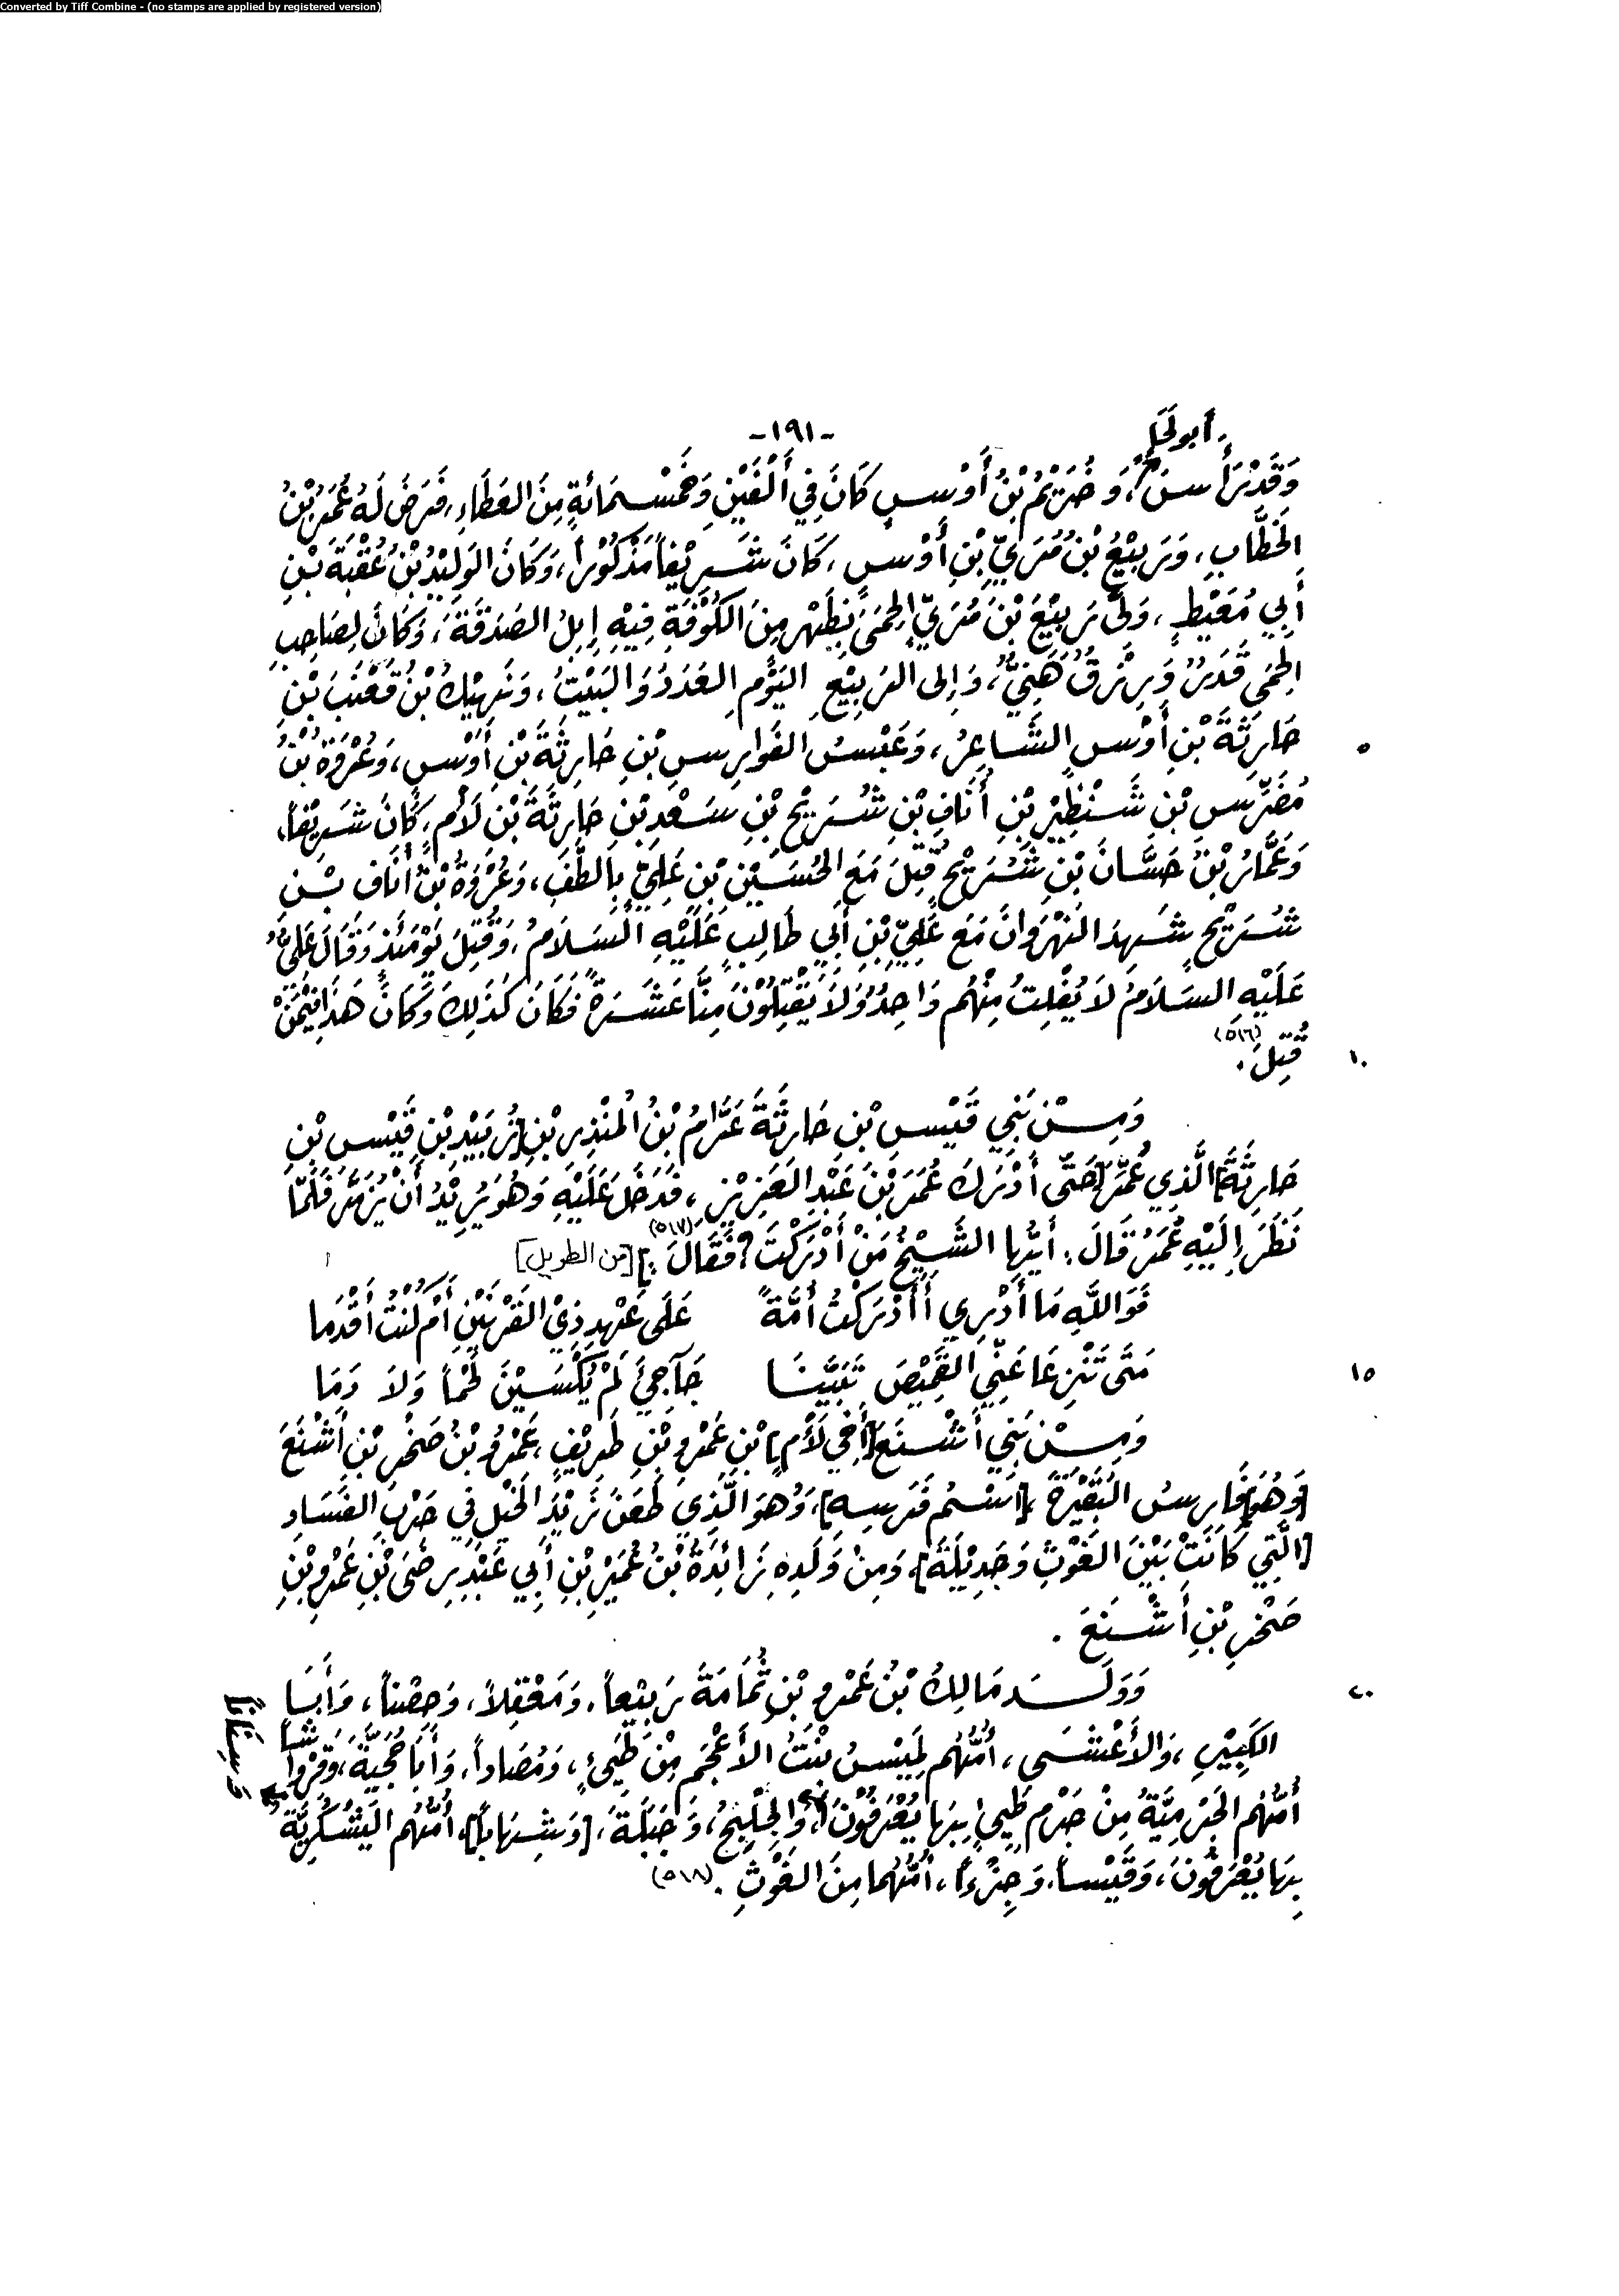 Converted by Tiff Combine - (no stamps are applied by registered version)
أبو لَجَإٍ
-١٩١-
وَقَدْ رَأَسَ، وَخُرَيْمُ بْنُ أَوْسٍ كَانَ فِي أَلْفَيْنِ وَخَمْسِمَائَةٍ مِنَ العَطَاءِ، فَرَضَ لَهُ عُمَرُ بْنُ
الخَطَّابِ، وَرَبِيْعُ بْنُ مُرَيِّ بْنِ أَوْسٍ، كَانَ شَرِيْفاً مَذْكُوْراً، وَكَانَ الوَلِيْدُ بْنُ عُقْبَةَ بْنِ
أَبِي مُعَيْطٍ، وَلَّى رَبِيْعَ بْنَ مُرَيٍّ الحِمَى بِظَهْرٍ مِنَ الكُوْفَةِ فِيْهِ إِبِلُ الصَدَقَةَ، وَكَانَ لِصَاحِبِ
الحِمَى قَدَرٌ وَرِزْقٌ هَنِيٌّ، وَإِلى الرَبِيْعِ اليَوْمِ العَدَدُ وَالبَيْتُ، وَنَهِيْكُ بْنُ قَعْنَبَ بْنِ
حَارِثَةَ بْنِ أَوْسٍ الشَاعِرُ، وَعَبْسُ الفَوارِسِ بْنِ حَارِثَةَ بْنِ أَوْسٍ، وَعُرْوَةُ بْنُ
٥
مُضَرِّسِ بْنِ شَنْظِيْرِ بْنِ أُنَافِ بْنِ شُرَيْحِ بْنِ سَعْدِ بْنِ حَارِثَةَ بْنِ لَأْمٍ، كَانَ شَرِيْفاً،
وَعَمَّارُ بْنُ حَسَّانَ بْنِ شُرَيْحٍ قُتِلَ مَعَ الحُسَيْنِ بْنِ عَلِيٍّ بِالطَّفِّ، وَعُرْوَةُ بْنُ أُنَافِ بْنِ
شُرَيْحٍ شَهِدَ النَهْرَوَانَ مَعَ عَلِيِّ بْنِ أَبِي طَالِبٍ عَلَيْهِ السَلَامُ، وَقُتِلَ يَوْمَئِذٍ وَقَالَ عَلِيٌّ
عَلَيْهِ السَلَامُ لَا يُفْلِتُ مِنْهُم وَاحِدٌ وَلَا يَقْتِلُوْنَ مِنَّا عَشَرَةً فَكَانَ كَذَلِكَ وَكَانَ هَذَا فِيْمَنْ
قُتِلَ.(٥١٦)
١٠
وَمِنْ بَنِي قَيْسِ بْنِ حَارِثَةَ عَرَّامُ بْنُ المُنْذِرِ بْنِ [زُبَيْدِ بْنِ قَيْسِ بْنِ
حَارِثَةَ] الَّذِي عُمِّرَ [حَتَّى أَدْرَكَ عُمَرَ بْنَ عَبْدِ العَزِيْزِ، فَدَخَلَ عَلَيْهِ وَهُوَ يُرِيْدُ أَنْ يُزَمَّرَ فَلَمَّا
نَظَرَ إِلَيْهِ عُمَرُ قَالَ: أَيُّها الشَيْخُ مَنْ أَدْرَكْتَ؟ فَقَالَ(٥١٧):] [من الطويل]
فَوَاللَّهِ مَا أَدْرِي أَأَدْرَكْتُ أُمَّةً عَلَى عَهْدِ ذِيْ القَرْنَيْنِ أَمْ كُنْتُ أَقْدَمَا
مَتَى تَنْزِعَا عَنِّي القَمِيْصَ تَبَيَّنَا جَآجِئَ لَمْ يُكْسَيْنَ لَحْماً وَلَا دَمَا
١٥
وَمِنْ بَنِي أَشْنَعَ [أَخِي لَأْمٍ] بْنِ عَمْرِو بْنِ طَرِيْفٍ، عَمْرُو بْنُ صَخْرِ بْنِ أَشْنَعَ
[وَهُوَ] فَارِسُ البَقِيْرَةِ، [اسْمُ فَرَسِهِ]، وَهُوَ الَّذِي طَعَنَ زَيْدَ الخَيْلِ فِي حَرْبِ الفَسَادِ
[الَّتِي كَانَتْ بَيْنَ الغَوْثِ وَجَدِيْلَةَ]، وَمِنْ وَلَدِهِ زَائِدَةُ بْنُ عُمَيْرِ بْنِ أَبِي عَبْدِ رِضَى بْنِ عَمْرِو بْنِ
صَخْرِ بْنِ أَشْنَعَ.
وَوَلَدَ مَالِكُ بْنُ عَمْرِو بْنِ ثُمَامَةَ رَبِيْعاً، وَمَعْقِلاً، وَحِصْناً، وَأَبَا
٢٠
الكَبِيْرِ، وَالأَعْشَى، أُمُّهُم لَمِيْسُ بِنْتُ الأَعْجَمِ مِنْ طَيِّئٍ، وَمُصَاداً، وَأَبَا حُجَيَّةَ، وَقِرْوَاشاً
وَسِنَاناً
أُمُّهُم الجَرْمِيَّةُ مِنْ جَرْمِ طَيِّئٍ بِهَا يُعْرَفُوْنَ، وَالجُلَيْحُ، وَجَبَلَةَ، [وَشِهَاباً]، أُمُّهُم اليَشْكُرِيَّةُ
بِهَا يُعْرَفُونَ، وَقَيْساً، وَجِزْءاً، أُمُّهُما مِنَ الغَوْثِ.(٥١٨)